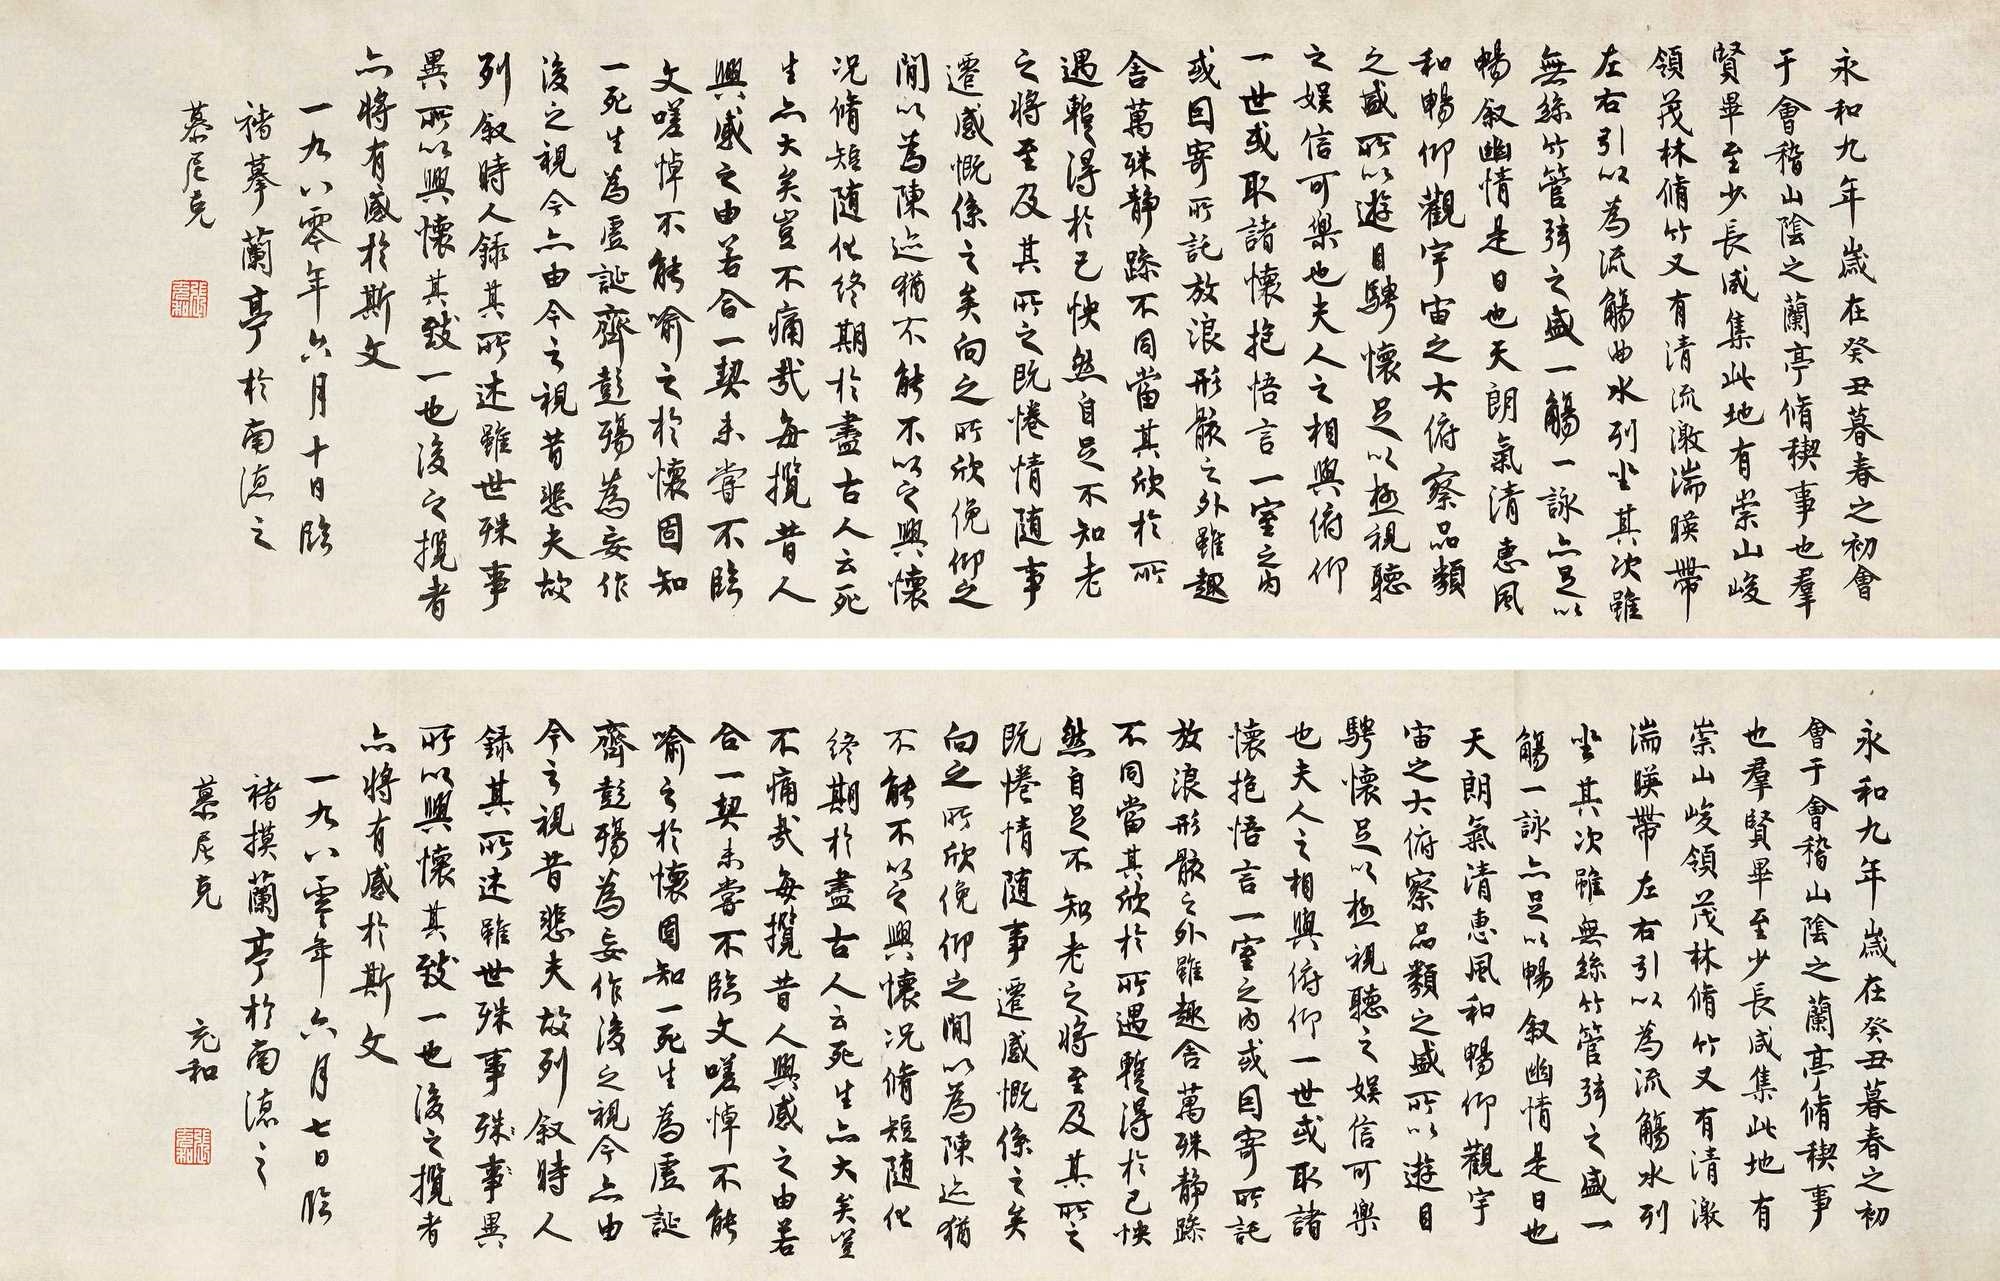 永和九年歲在癸丑暮春之初會
于會稽山陰之蘭亭脩稧事也羣
賢畢至少長咸集此地有崇山峻
領茂林脩竹又有清流激湍暎帶
左右引以為流觴曲水列坐其次雖
無絲竹管弦之盛一觴一詠亦足以
暢叙幽情是日也天朗氣清惠風
和暢仰觀宇宙之大俯察品類
之盛所以遊目騁懷足以極視聽
之娛信可樂也夫人之相與俯仰
一世或取諸懷抱悟言一室之內
或因寄所託放浪形骸之外雖趣
舍萬殊靜躁不同當其欣於所
遇暫得於己怏然自足不知老
之將至及其所之既惓情隨事
遷感慨係之矣向之所欣俛仰之
閒以為陳迹猶不能不以之興懷
况脩短隨化終期於盡古人云死
生亦大矣豈不痛哉每攬昔人
興感之由若合一契未甞不臨
文嗟悼不能喻之於懷固知
一死生為虛誕齊彭殤為妄作
後之視今亦由今之視昔悲夫故
列叙時人錄其所述雖世殊事
異所以興懷其致一也後之攬者
亦將有感於斯文
一九八零年六月十日臨
褚摹蘭亭於南德之
慕尼克
張氏充和
永和九年歲在癸丑暮春之初
會于會稽山陰之蘭亭脩稧事
也羣賢畢至少長咸集此地有
崇山峻領茂林脩竹又有清激
湍暎帶左右引以為流觴水列
坐其次雖無絲竹管弦之盛一
觴一詠亦足以暢叙幽情是日也
天朗氣清惠風和暢仰觀宇
宙之大俯察品類之盛所以遊目
騁懷足以極視聽之娛信可樂
也夫人之相與俯仰一世或取諸
懷抱悟言一室之內或因寄所託
放浪形骸之外雖趣舍萬殊靜躁
不同當其欣於所遇暫得於己怏
然自足不知老之將至及其所之
既惓情隨事遷感慨係之矣
向之所欣俛仰之閒以為陳迹猶
不能不以之興懷况脩短隨化
終期於盡古人云死生亦大矣豈
不痛哉每攬昔人興感之由若
合一契未甞不臨文嗟悼不能
喻之於懷固知一死生為虛誕
齊彭殤為妄作後之視今亦由
今之視昔悲夫故列叙時人
錄其所述雖世殊事殊事異
所以興懷其致一也後之攬者
亦將有感於斯文
一九八零年六月七日臨
褚摸蘭亭於南德之
慕尼克 充和
張氏充和